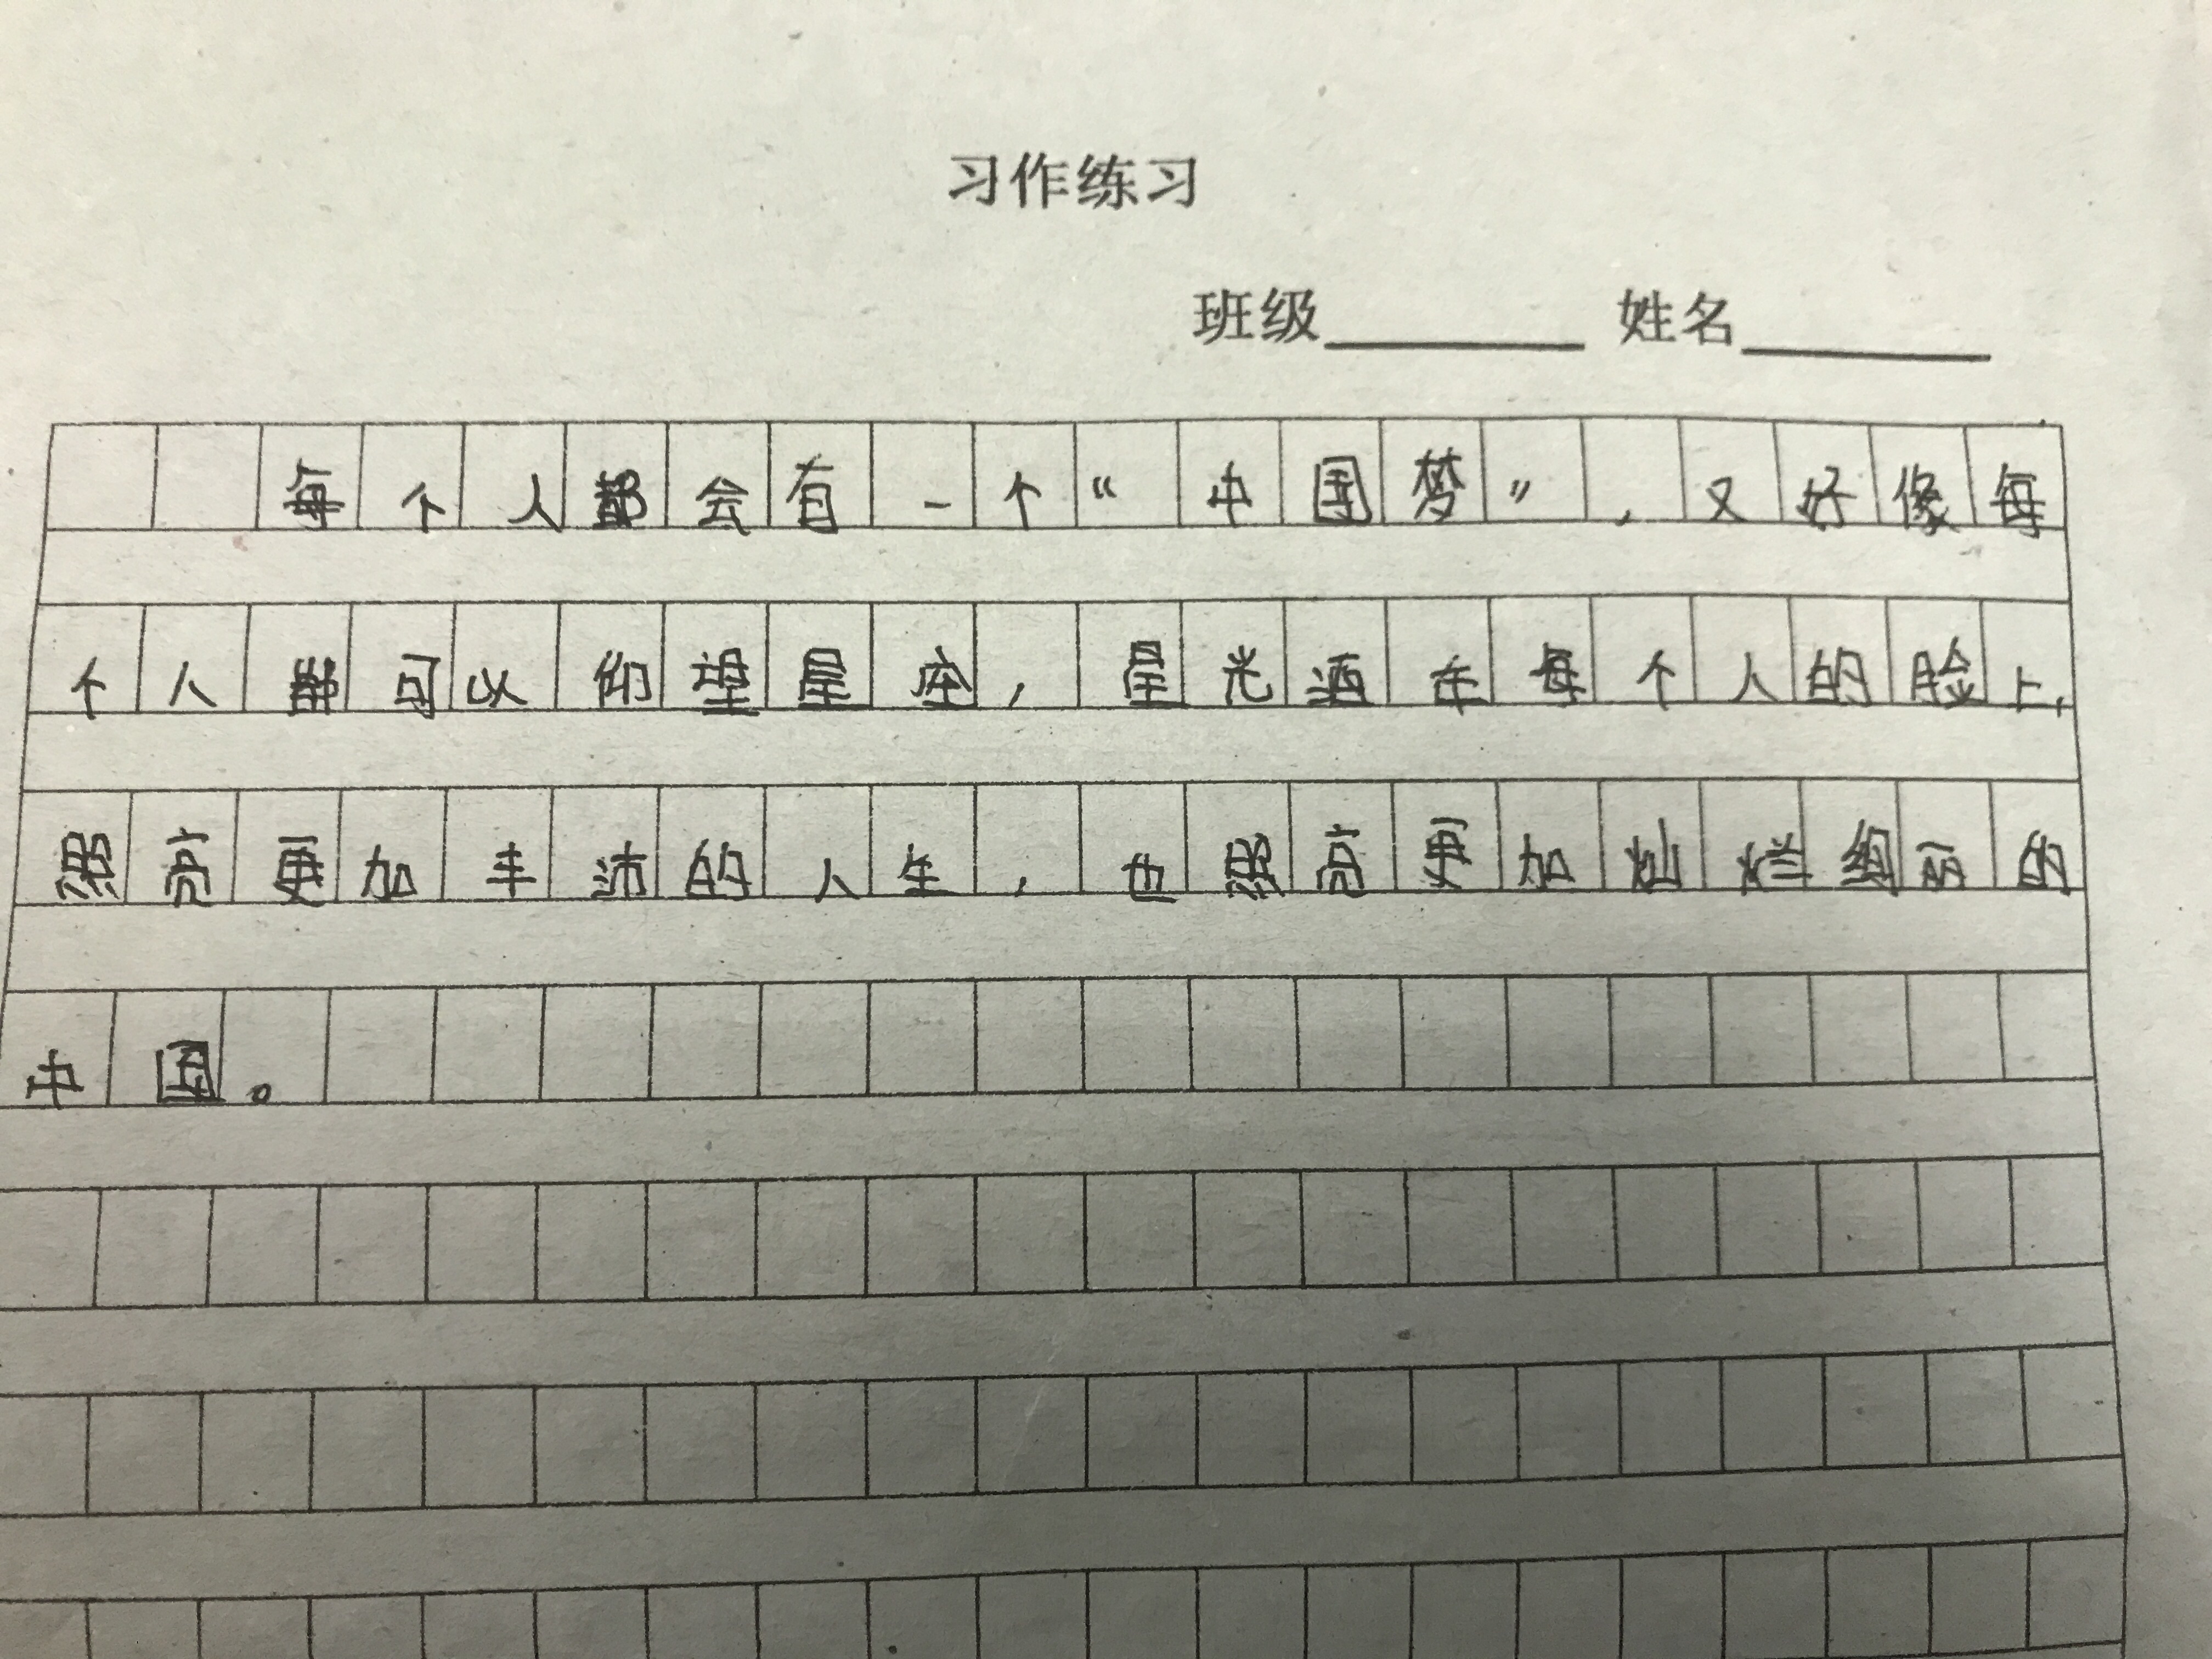 习作练习
班级 姓名
每个人都会有一个“中国梦”,又好像每
个人都可以仰望星空,星光洒在每个人的脸上,
照亮更加丰沛的人生,也照亮更加灿烂绚丽的
中国。